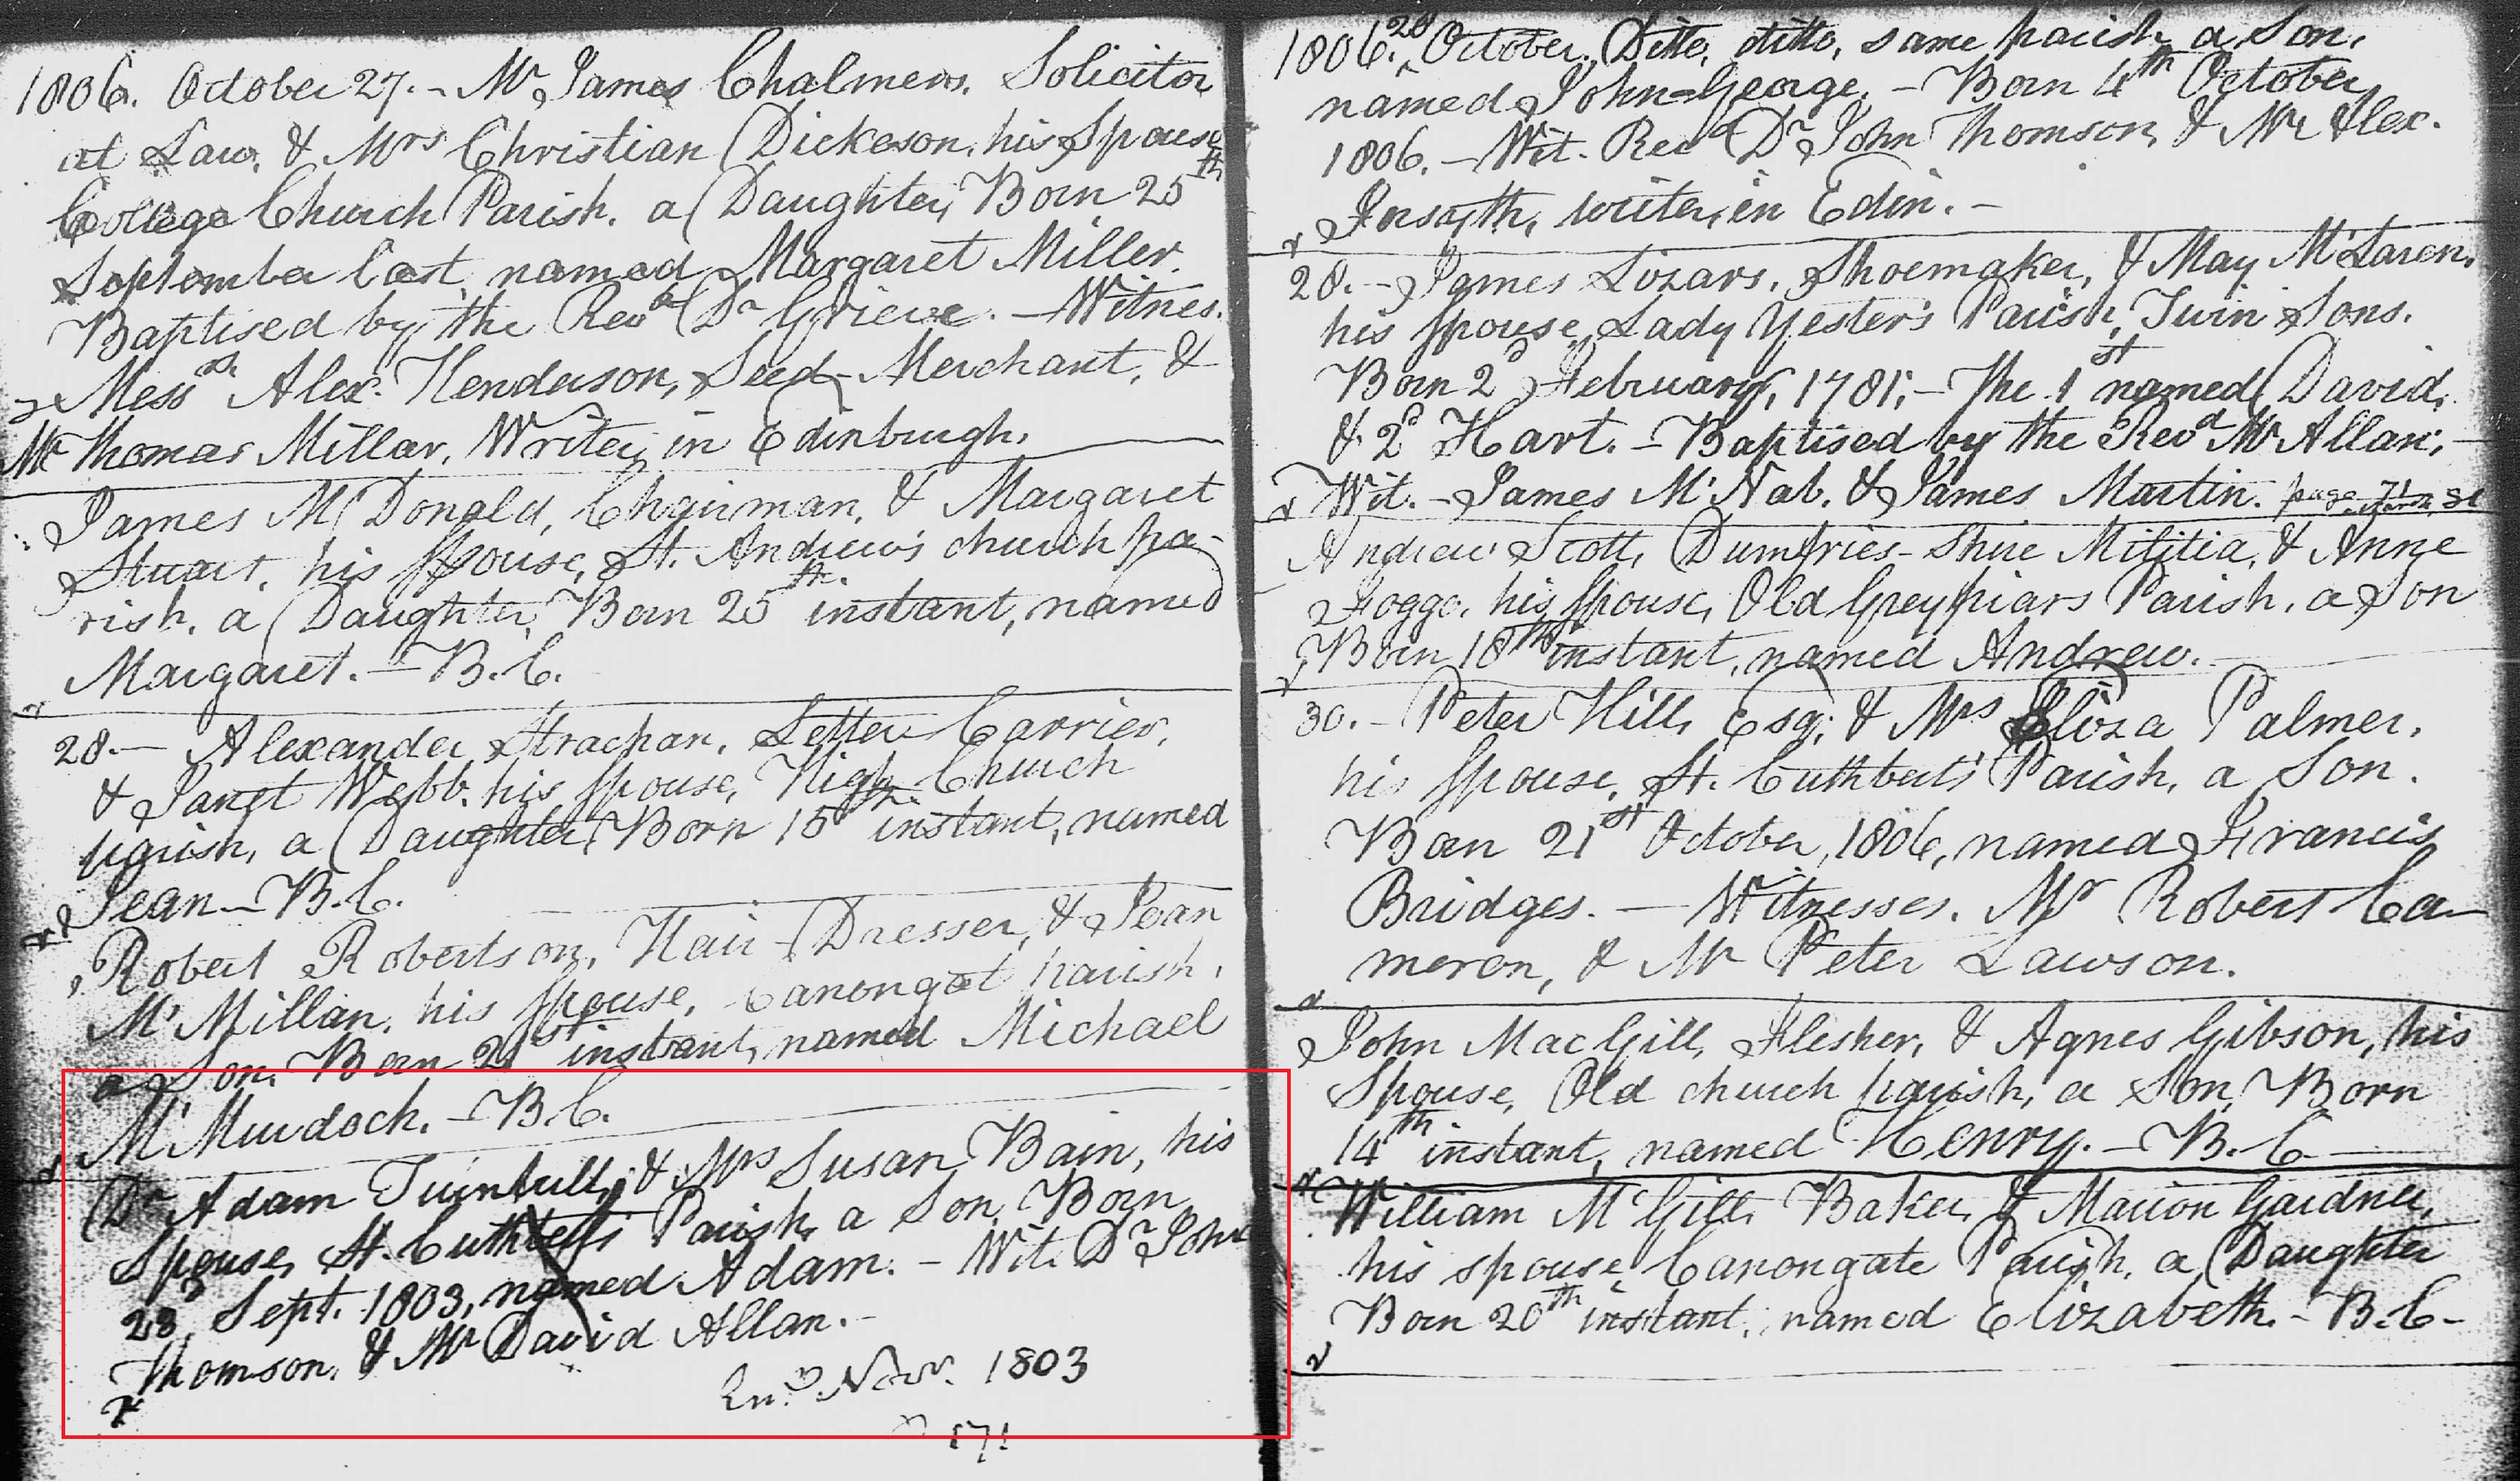 1806. October 27. - Mr James Chalmers, Solicitor
at Law, & Mrs Christian Dickeson, his Spouse
College Church Parish, a Daughter, Born 25th
September last, named Margaret Miller.
Baptised by the Revd Dr Grieve. - Witnes.
Messrs Alexr. Henderson, Seed-Merchant, &
Mr Thomas Millar, Writer in Edinburgh.
James McDonald, Chairman, & Margaret
Stuart, his Spouse, St. Andrew's church pa-
rish, a Daughter, Born 25th instant, named
Margaret. - B.C.
28. - Alexander Strachan, Letter Carrier,
& Janet Webb, his Spouse, High Church
parish, a Daughter, Born 15th instant, named
Jean - B.C.
Robert Robertson, Hair-Dresser, & Jean
McMillan, his Spouse, Canongate parish,
a Son, Born 21st instant, named Michael
McMurdoch. - B.C.
Dr Adam Turnbull, & Mrs Susan Bain, his
Spouse, St. Cuthbert's Parish, a Son, Born
23d Sept. 1803, named Adam. - Wit. Dr John
Thomson, & Mr David Allan. -
Nov. 1803
171
1806. 28 October. Ditto, ditto, same parish, a Son,
named John-George. - Born 4th October
1806. - Wit. Revd Dr John Thomson, & Mr Alex.
Forsyth, writer, in Edin. -
28. - James Lizars, Shoemaker, & May McLaren,
his Spouse, Lady Yester's Parish, Twin Sons.
Born 2d February, 1781, - The 1st named David,
& 2d Hart. - Baptised by the Revd Mr Allan, -
Wit. - James McNab, & James Martin. page
Andrew Scott, Dumfries-Shire Militia, & Anne
Foggo, his Spouse, Old Greyfriars Parish, a Son
Born 18th instant, named Andrew. -
30. - Peter Hill, Esq; & Mrs Eliza Palmer,
his Spouse, St. Cuthbert's Parish, a Son.
Born 21st October, 1806, named Francis
Bridges. - Witnesses, Mr Robert Ca-
meron, & Mr Peter Lawson.
John MacGill, Flesher, & Agnes Gibson, his
Spouse, Old church parish, a Son, Born
14th instant, named Henry. - B.C. -
William McGill, Baker, & Marion Gardner,
his spouse, Canongate Parish, a Daughter
Born 20th instant, named Elizabeth. - B.C. -